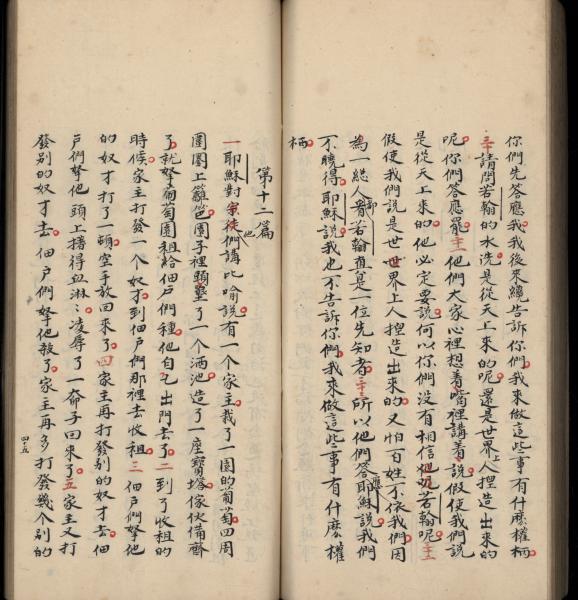 你們先答應我我後來纔告訴你們我來做這些事有什麼權柄
三十請問若翰的水洗是從天上來的呢還是世界上人揑造出來的
呢你們答應罷三一他們大家心裡想着嘴裡講着說假使我們說
是從天上來的他必定要說何以你們沒有相信他呢若翰呢三二
假使我們說是世世界上人揑造出來的又怕百姓不依我們因
為一総人都看若翰直是一位先知者三三所以他們答應耶穌說我們
不曉得耶穌說我也不告訴你們我來做這些事有什麼權
柄
第十二篇
一耶穌對他家徒們講比喻說有一个家主栽了一園的葡萄四周
圍圈上籬笆園子裡頭墾了一个酒池造了一座寶塔傢伙備齊
了就拏葡萄園租給佃户們種他自己出門去了二到了收租的
時候家主打發一个奴才到佃户們那裡去收租三佃户們拏他
的奴才打了一頓空手放回來了四家主再打發别的奴才去佃
户們拏他頭上撦得血淋淋凌辱了一會子回來了五家主又打
發别的奴才去佃户們拏他殺了家主再多打發幾个别的
四十五